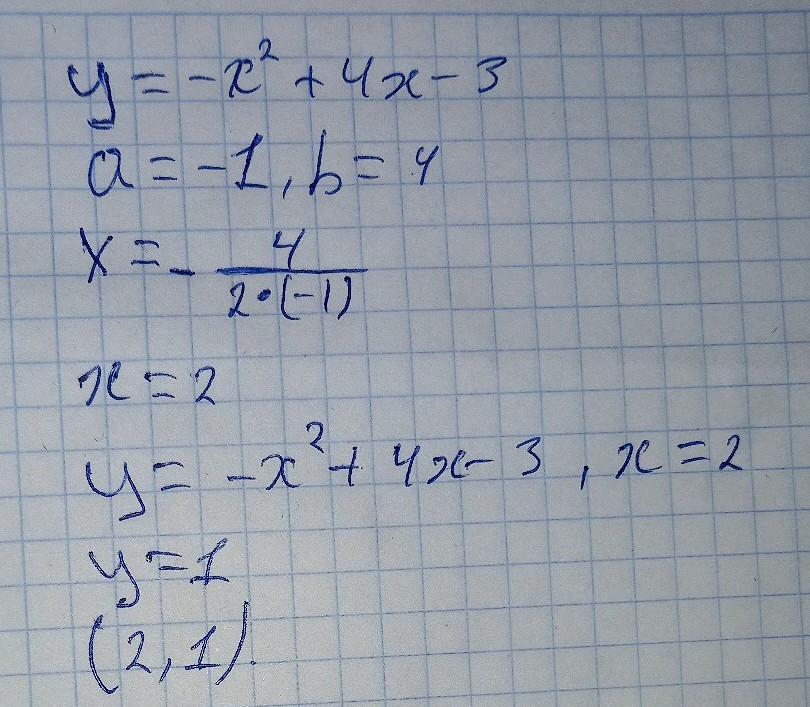 y = -x² + 4x - 3
a = -1, b = 4
x = - 4/(2•(-1))
x = 2
y = -x² + 4x - 3, x = 2
y = 1
(2, 1).